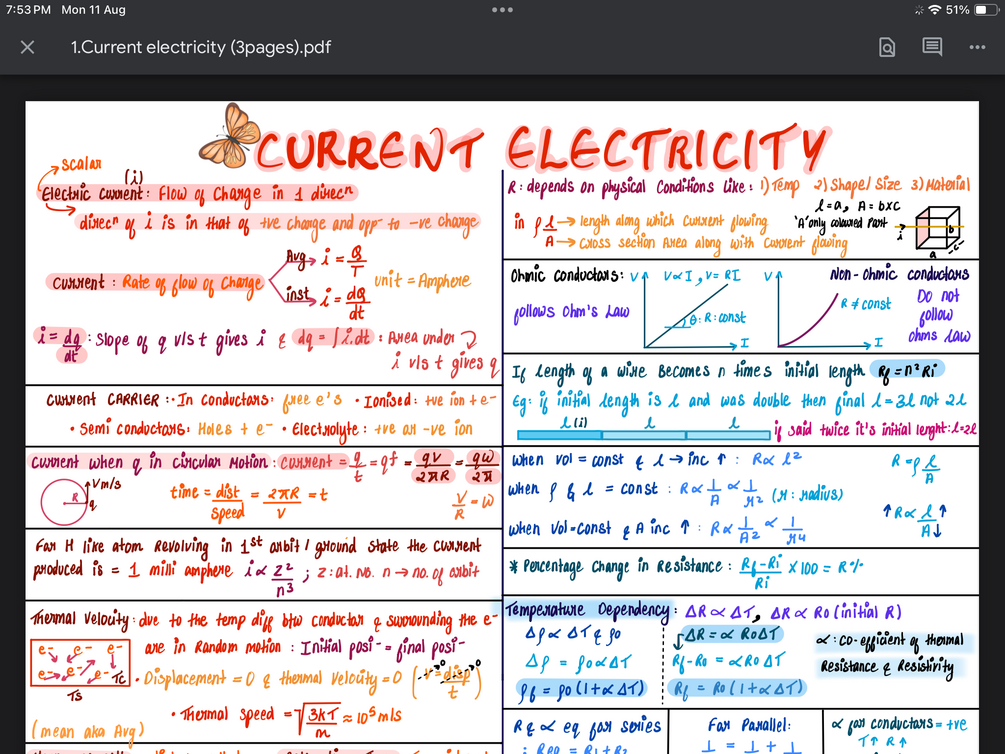 7:53 PM Mon 11 Aug
51%
1.Current electricity (3pages).pdf
CURRENT ELECTRICITY
scalar
(i)
Electric current: Flow of Charge in 1 direcn
direcn of i is in that of +ve charge and opp to -ve charge
Current : Rate of flow of Charge
Avg i = Q/T
inst i = dQ/dt
unit = Amphere
i = dq/dt : Slope of q v/s t gives i & dq = ∫i.dt : Area under
i v/s t gives q
Current CARRIER :· In Conductors: free e's · Ionised: +ve ion + e-
· Semi conductors: Holes + e- · Electrolyte: +ve an -ve ion
Current when q in circular Motion: current = q/t = qf = qV/2πR = qω/2π
R
V m/s
q
time = dist/speed = 2πR/V = t
V/R = ω
For H like atom Revolving in 1st orbit / ground state the current
produced is = 1 milli amphere i ∝ z²/n³ ; z: at. no. n → no. of orbit
Thermal Velocity: due to the temp diff btw conductor & surrounding the e-
are in Random motion : Initial posi- = final posi-
e- e- e-
e- e- e- TC
TS
· Displacement = 0 & thermal Velocity = 0 (v = disp/t)
· Thermal speed = √3kT/m ≈ 10⁵ m/s
(mean aka Avg)
R: depends on physical Conditions like: 1) Temp 2) Shape/Size 3) Material
l = a, A = b×c
in ρ l/A → length along which Current flowing
→ Cross section Area along with Current flowing
'A' only coloured Part
i
b
c
a
Ohmic Conductors: V V∝I, V = RI
follows Ohm's Law
θ: R: const
I
V Non-Ohmic conductors
R ≠ const
Do not
follow
ohms law
I
If length of a wire Becomes n times initial length Rf = n² Ri
Eg: if initial length is l and was double then final l = 3l not 2l
l (i) l l
if said twice it's initial lenght: l = 2l
When vol = const & l → inc ↑ : R ∝ l²
When ρ & l = const : R ∝ 1/A ∝ 1/r² (r: radius)
When Vol = Const & A inc ↑ : R ∝ 1/A² ∝ 1/r4
R = ρ l/A
↑ R ∝ l↑/A↓
* Percentage Change in Resistance : Rf-Ri/Ri × 100 = R%
Temperature Dependency: ΔR ∝ ΔT, ΔR ∝ Ro (initial R)
Δρ ∝ ΔT & ρo
Δρ = ρo ∝ ΔT
ρf = ρo (1+∝ΔT)
ΔR = ∝ RoΔT
Rf-Ro = ∝Ro ΔT
Rf = Ro (1+∝ΔT)
∝: CO-efficient of thermal
Resistance & Resistivity
R & ∝ eq for series
: Req = R1+R2
For Parallel:
1 = 1 + 1
∝ for conductors = +ve
T↑ R↑